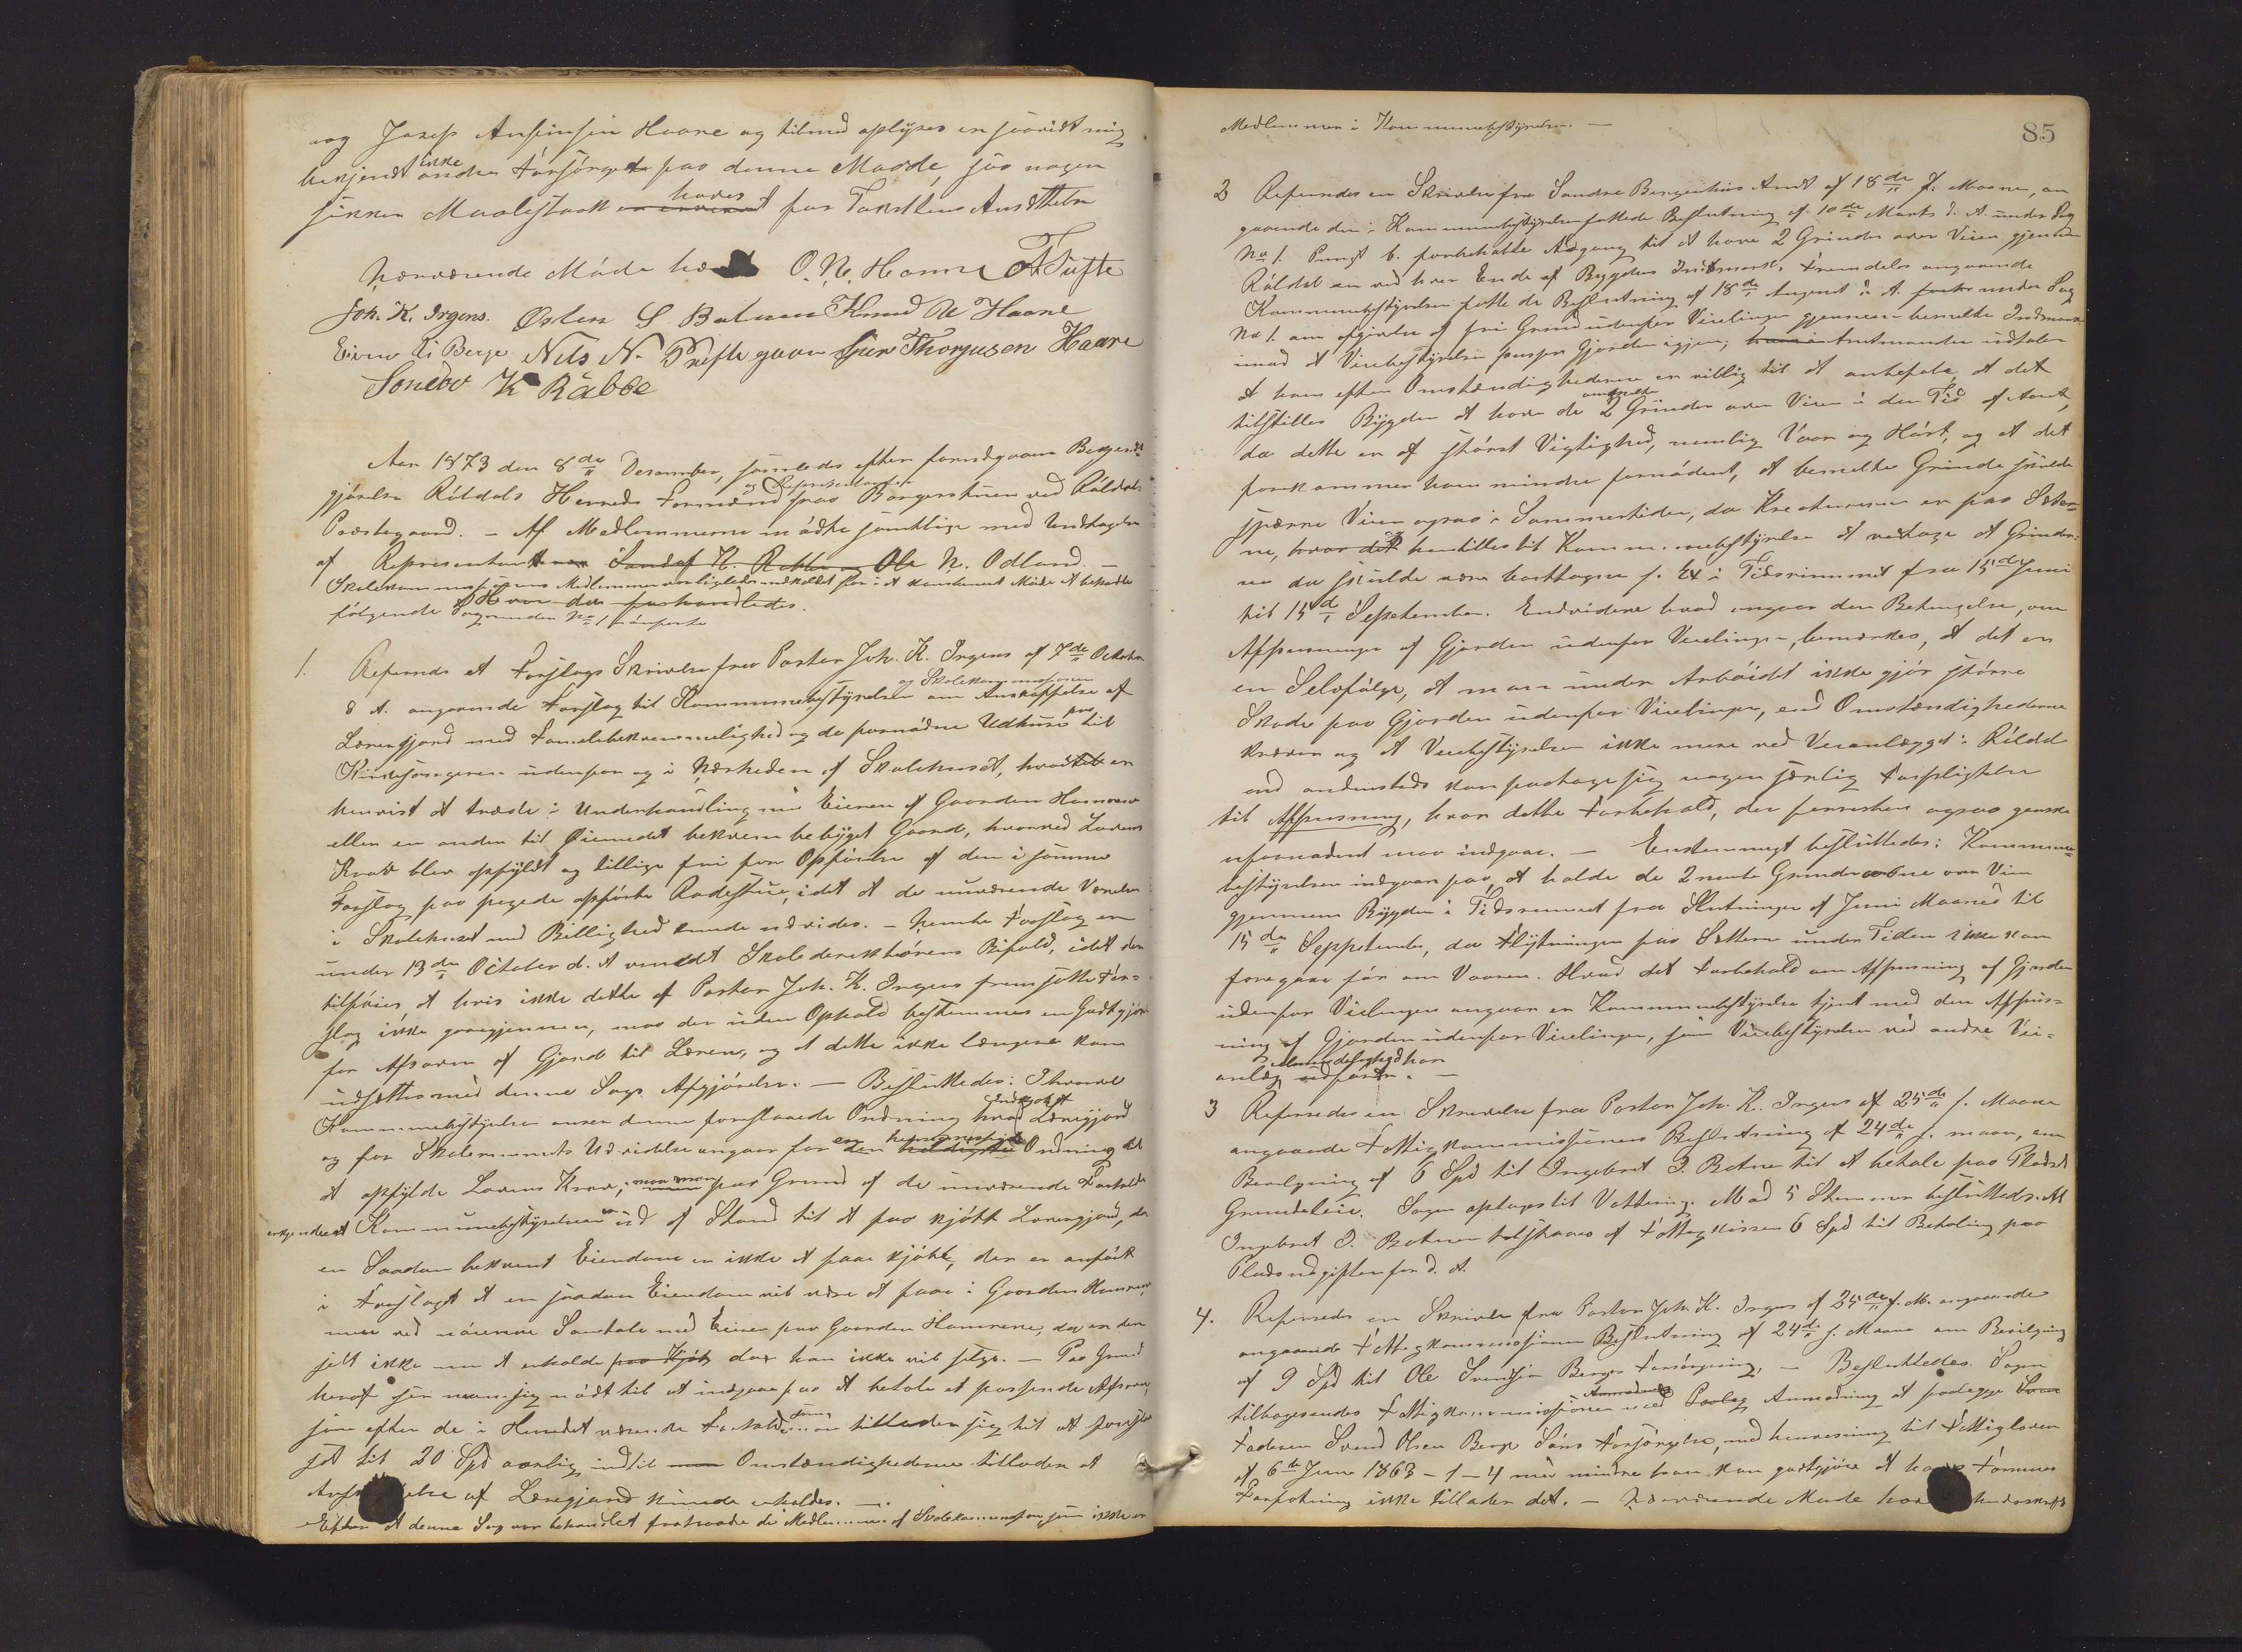 og Joseph Ansteinsen Haare og tilmed oplyses en saavidt mig
bekjendt ikke andre Forsørget paa denne Maade, saa nogen
sikker Maalestaak haves for Takstens Ansættelse
Nærværende Møde O. N. Haare A Tufte
Joh. K. Irgens. Østen S Botnen Knud N Haare
Eivind Ei Berge Nils N. Prestegaar Sjur Thorgusen Haare
Sondov K Rabbe
Aar 1873 den 8de Desember, samledes efter forudgaaen Bekjendt-
gjørelse Røldals Herreds Formænd og Representanter paa Borgerstuen ved Røldals
Præstegaard. - Af Medlemmerne mødte samtlige med Undtagelse
af Representanterne Sandof K. Rabbe og Ole N. Odland. -
Skolekommisjonens Medlemmer var ligeledes indkaldt for i et kombineret Møde at behandle
Hvor da forhandledes.
følgende Sag under No 1 anførte
1. Refereredes et Forslags Skrivelse fra Pastor Joh. K. Irgens af 7de October
d A. angaaende Forslag til Kommunebestyrelsen og Skolekommisjonen om Anskaffelse af
Lærerjord med Familiebekvemmelighed og de fornødne Udhuse for til
Kirkesangeren udenfor og i Nærheden af Skolehuset, hvortil er
henvist at træde i Underhandling med Eieren af Gaarden Hamrene
eller en anden til Øiemedet bekvem bebygget Gaard, hvorved Lovens
Krav blev opfyldt og tillige fri for Opførelse af den i samme
Forslag paa pegede opførte Radestue, idet at de nuværende Værelser
i Skolehuset med Billighed kunde udvides. - Nævnte Forslag er
under 13de October d. A vundet Skoledirektørens Bifald, idet der
tilføies, at hvis ikke dette af Pastor Joh. K. Irgens fremsatte For-
slag ikke gaar gjennem, maa der uden Ophold bestemmes en Godtgjørelse
for Afsavn af Jord til Læreren, og at dette ikke længere kan
udsættes med denne Sags Afgjørelse. - Besluttedes: Ihvorvel
Kommunebestyrelsen anser denne foreslaaede Ordning hvad Indkjøb af Lærerjord
og for Skolerummets Udvidelse angaar for en hensigtsmessig Ordning til
at opfylde Lovens Krav, maa man paa Grund af de nuværende Forholde
erkjende at Kommunebestyrelsen er ud af Stand til at faa kjøbt Lærerjord, da
en Saadan bekvemt Eiendom er ikke at faa kjøbt, der er anført
i Forslaget at en saadan Eiendom vil være at faa i Gaarden Hamrene,
men ved nøiere Samtale med Eieren paa Gaarden Hamrene, da er den
jelt ikke om at erholde paa Kjøb da han ikke vil selge. - Paa Grund
heraf ser man sig nødt til at indgaa paa at betale et passende Afsavn,
som efter de i Herredet værende Forholde man tillader sig til at foresl
aet til 20 Spd aarlig indtil Omstændighederne tillader at
af Lærerjord kunde erholdes. -
Efter at denne Sag var behandlet fratraadte de Medlemmer af Skolekommisjonen, som ikke er
Medlemmer i Kommunebestyrelsen. -
85
2 Refereredes en Skrivelse fra Søndre Bergenhus Amt af 18de f. Maaned, an
gaaende den i Kommunebestyrelsen fattede Beslutning af 10de Marts d. A. under Sag
No 1. Punkt 6. forbeholdte Adgang til at have 2 Grinder over Veien gjennem
Røldal en ved hver Ende af Bygdens Indmark. Fremdeles angaaende
Kommunebestyrelsen fatte de Beslutning af 18de August d. A. under Sag
No 1. om afgivelse af fri Grund udenfor Veielinjen gjennem bemeldte Indmark
imod at Veibestyrelsen pusser Gjorden igjen; Amtmanden udtaler
at han efter Omstændighederne er villig til at anbefale at det
tilstilles Bygden at have de omtalte 2 Grinder over Veien i den Tid af Aaret,
da dette er af størst Vigtighed, nemlig Vaar og Høst, og at det
forekommer ham mindre fornødent, at bemeldte Grinde skulde
spærre Veien ogsaa i Sommertiden, da Kreaturene er paa Sæter-
ne, hvor det henstilles til Kommunebestyrelsen at vedtage at Grinder-
ne da skulde være borttagne f. Ex i Tidsrummet fra 15de Juni
til 15de September. Endvidere hvad angaar den Betingelse, om
Afpusninger af Gjorden udenfor Veielinjen, bemærkes, at det er
en Selvfølge, at man under Arbeidet ikke gjør større
Skade paa Gjorden udenfor Veielinjen, end Omstændighederne
kræver og at Veibestyrelsen ikke mere ved Veianlægget i Røldal
end andensteds kan paatage sig nogen særlig Forpligtelse
til Afpusning, hvor dette Forbehold, der forresten ogsaa ganske
ufornødent maa indgaae. - Enstemmigt besluttedes: Kommune-
bestyrelsen indgaar paa, at holde de 2 nevnte Grinder aabne over Veien
gjennem Bygden i Tidsrummet fra Slutningen af Juni Maaned til
15de September, da Flytningen paa Sætteren under Tiden ikke kan
foregaae før om Vaaren. Hvad det Forbehold om Afpusning af Gjorden
udenfor Veielinjen angaar er Kommunebestyrelsen tjent med den Afpus-
ning af Gjorden udenfor Veielinjen, som Veibestyrelsen ved andre Vei-
anlæg Almindelighed har. -
3 Refereredes en Skrivelse fra Pastor Joh. K. Irgens af 25de f. Maaned
angaaende Fattigkommisjonens Beslutning af 24de f. maan, om
Bevilgning af 6 Spd til Ingebret I. Botnen til at betale paa Pladsel
Grundeleie. Sagen optages til Vottering. Med 5 Stemmer besluttedes. At
Ingebret I. Botnen tilstaaes af Fattigkassen 6 Spd til Betaling paa
Pladsudgiften for d. A.
4. Refereredes en Skrivelse fra Pastor Joh. K. Irgens af 25de f. M. angaaende
angaaende Fattigkommissionens Beslutning af 24de f. Maaned om Bevilgning
af 9 Spd til Ole Svendsen Berges Forsørgning, - Besluttedes. Sagen
tilbagesendes Fattigkommissionen med Paalæg Anmodning at paalegge
Faderen Svend Olsen Berge Søns Forsørgelse, med henvisning til Fattigloven
af 6te Juni 1863 - 1 - 4 med mindre han kan godtgjøre at hans Formues
Forfatning ikke tillader det. - Nærværende Møde har underskrift